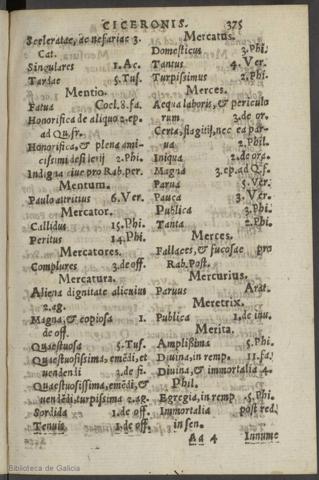 CICERONIS. 375
Sceleratae, ac nefariae 3.
Cat.
Singulares 1. Ac.
Tardae 5. Tus.
Mentio.
Fatua Coel. 8. fa.
Honorifica de aliquo 2. ep.
ad Qu. fr.
Honorifica, & plena ami-
cissimi desiderij 2. Phi.
Indigna ciue pro Rab. per.
Mentum.
Paulo attritius 6. Ver.
Mercator.
Callidus 15. Phi.
Peritus 14. Phi.
Mercatores.
Complures 3. de off.
Mercatura.
Aliena dignitate alicuius
2. ag.
Magna, & copiosa 1.
de off.
Quaestuosa 5. Tus.
Quaestuosissima, emēdi, et
uendendi 3. de fi.
Quaestuosissima, emēdi, &
uendēdi, turpissima 2. ag.
Sordida 1. de off.
Tenuis 1. de off.
Mercatus.
Domesticus 3. Phi.
Tantus 4. Ver.
Turpissimus 2. Phi.
Merces.
Aequa laboris, & periculo
rum 3. de or.
Certa, flagitij, nec ea par-
ua 2. Phil.
Iniqua 2. de ora.
Magna 3. ep. ad Q. f.
Parua 5. Ver.
Pauca 3. Ver.
Publica 3. Phi.
Tanta 2. Phi.
Merces.
Fallaces, & fucosae pro
Rab. Post.
Mercurius.
Paruus Arat.
Meretrix.
Publica 1. de inu.
Merita.
Amplissima 5. Phi.
Diuina, in remp. 11. fa.
Diuina, & immortalia 4.
Phil.
Egregia, in remp. 5. Phi.
Immortalia post red.
in sen.
Aa 4 Innume
Biblioteca de Galicia